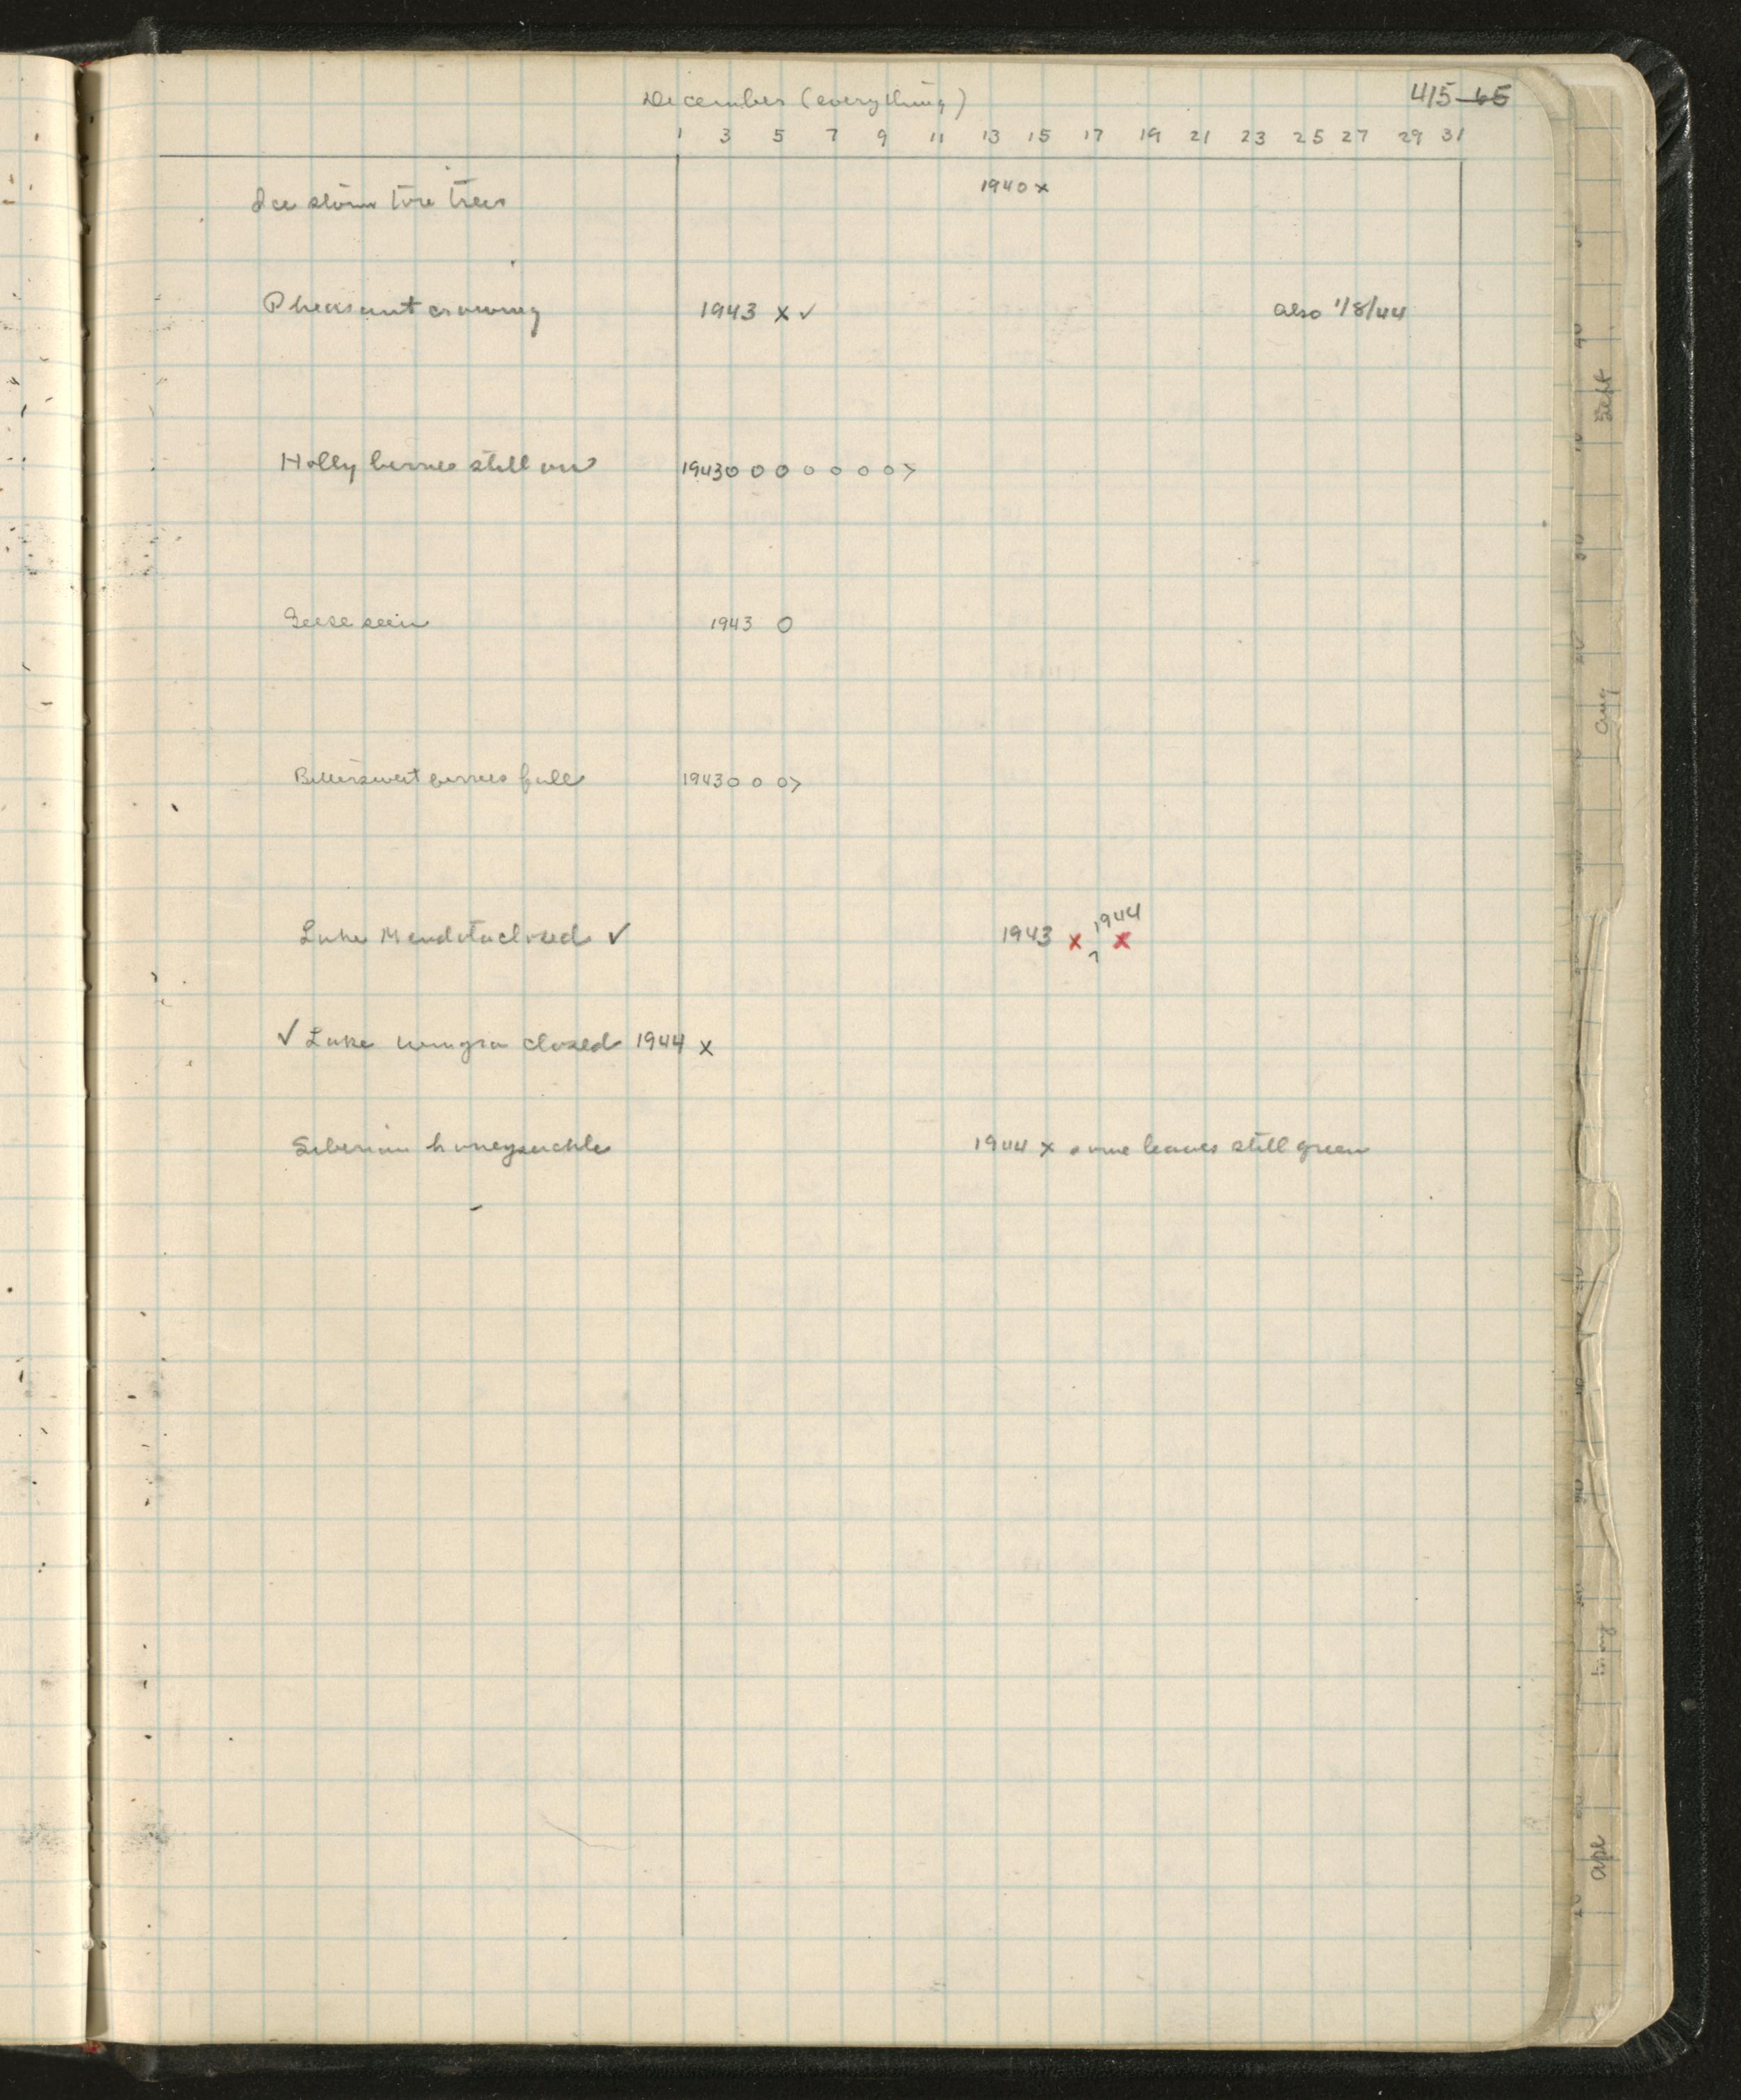 December (everything) 415-65
1 3 5 7 9 11 13 15 17 19 21 23 25 27 29 31
Ice storm tore trees 1940 x
Pheasant crowing 1943 x ✓ also 1/8/44
Holly berries still on 1943 o o o o o o o >
Geese seen 1943 o
Bittersweet berries full 1943 o o o >
Lake Mendota closed ✓ 1943 x ? 1944 x
✓ Lake Wingra closed 1944 x
Siberian honeysuckle 1944 x some leaves still green
Sept
Aug
May
Apl